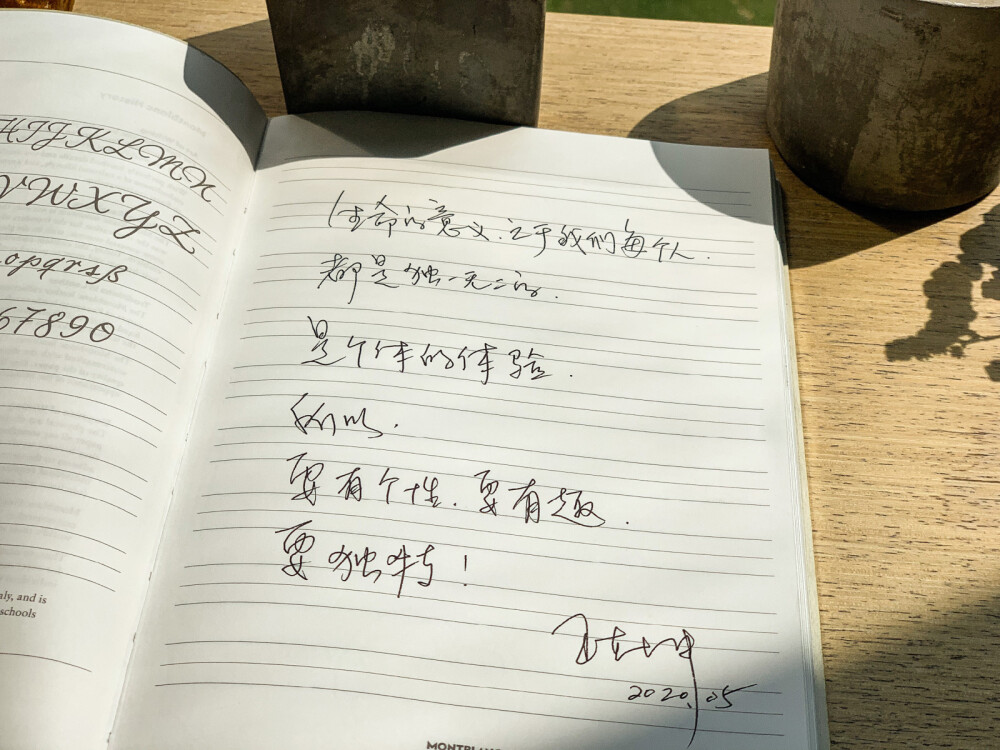 HIJKLMN
WXYZ
opqrsß
67890
and is
schools
生命的意义.之于我们每个人.
都是独一无二的.
是个体的体验.
所以.
要有个性.要有趣.
要独特!
2020.05